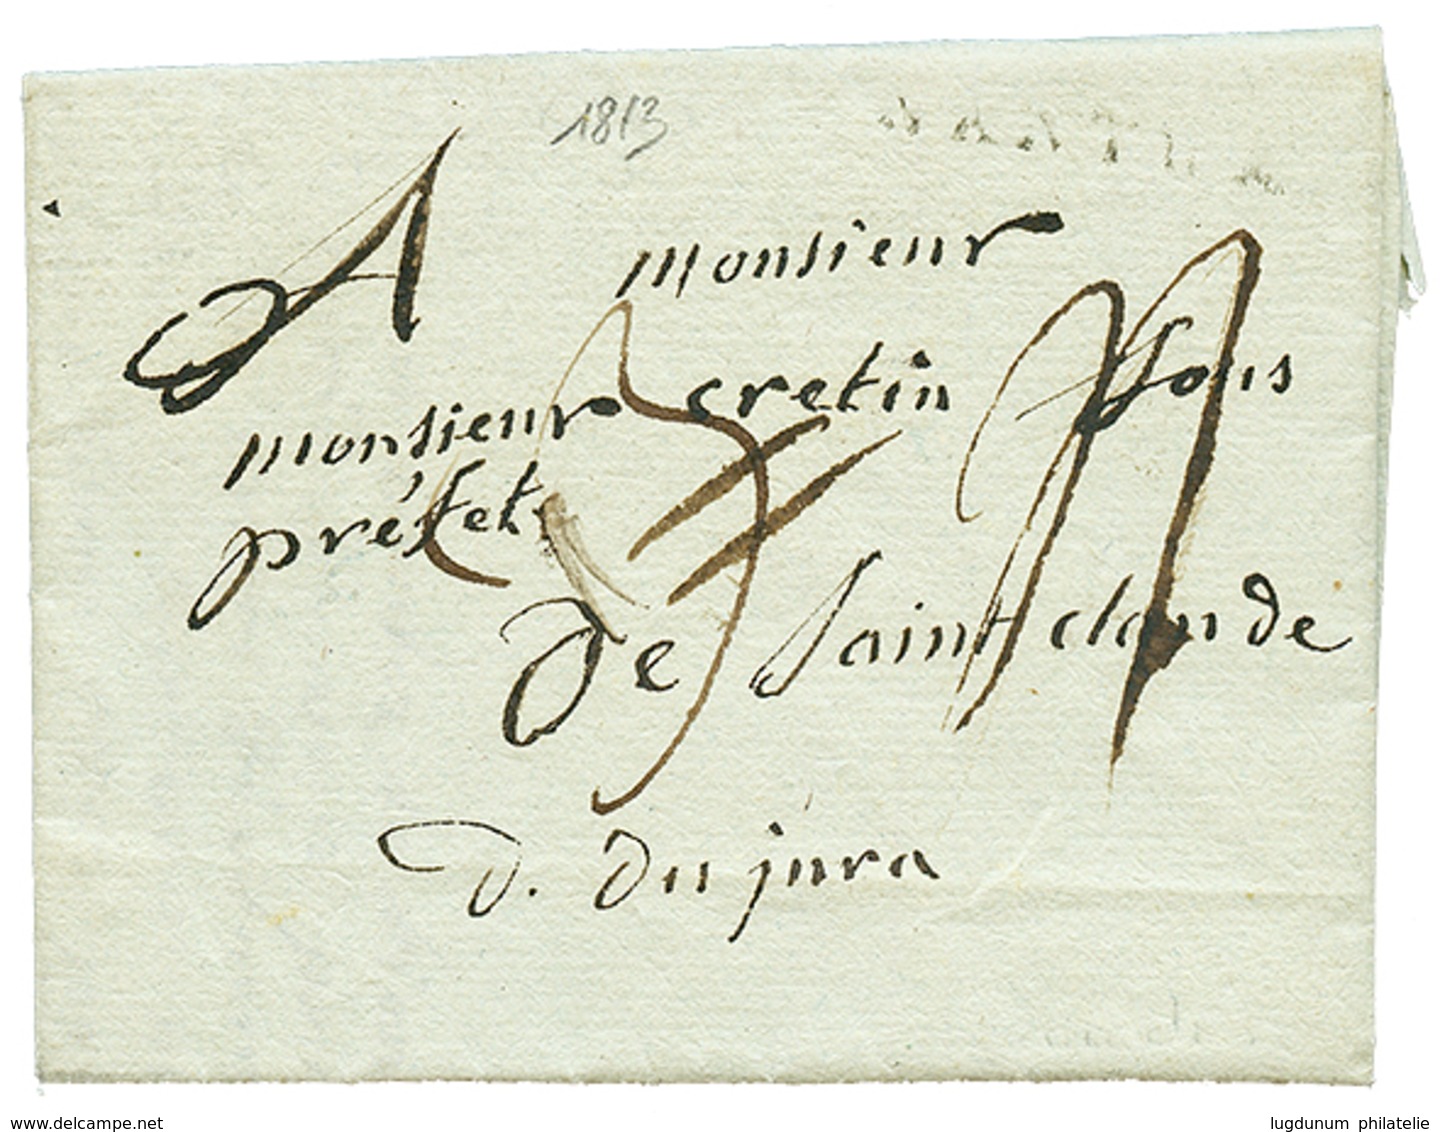 1813
A
monsieur
monsieur cretin sous
préfet
De Saint claude
D. Du jura
www.delcampe.net
lugdunum philatelie